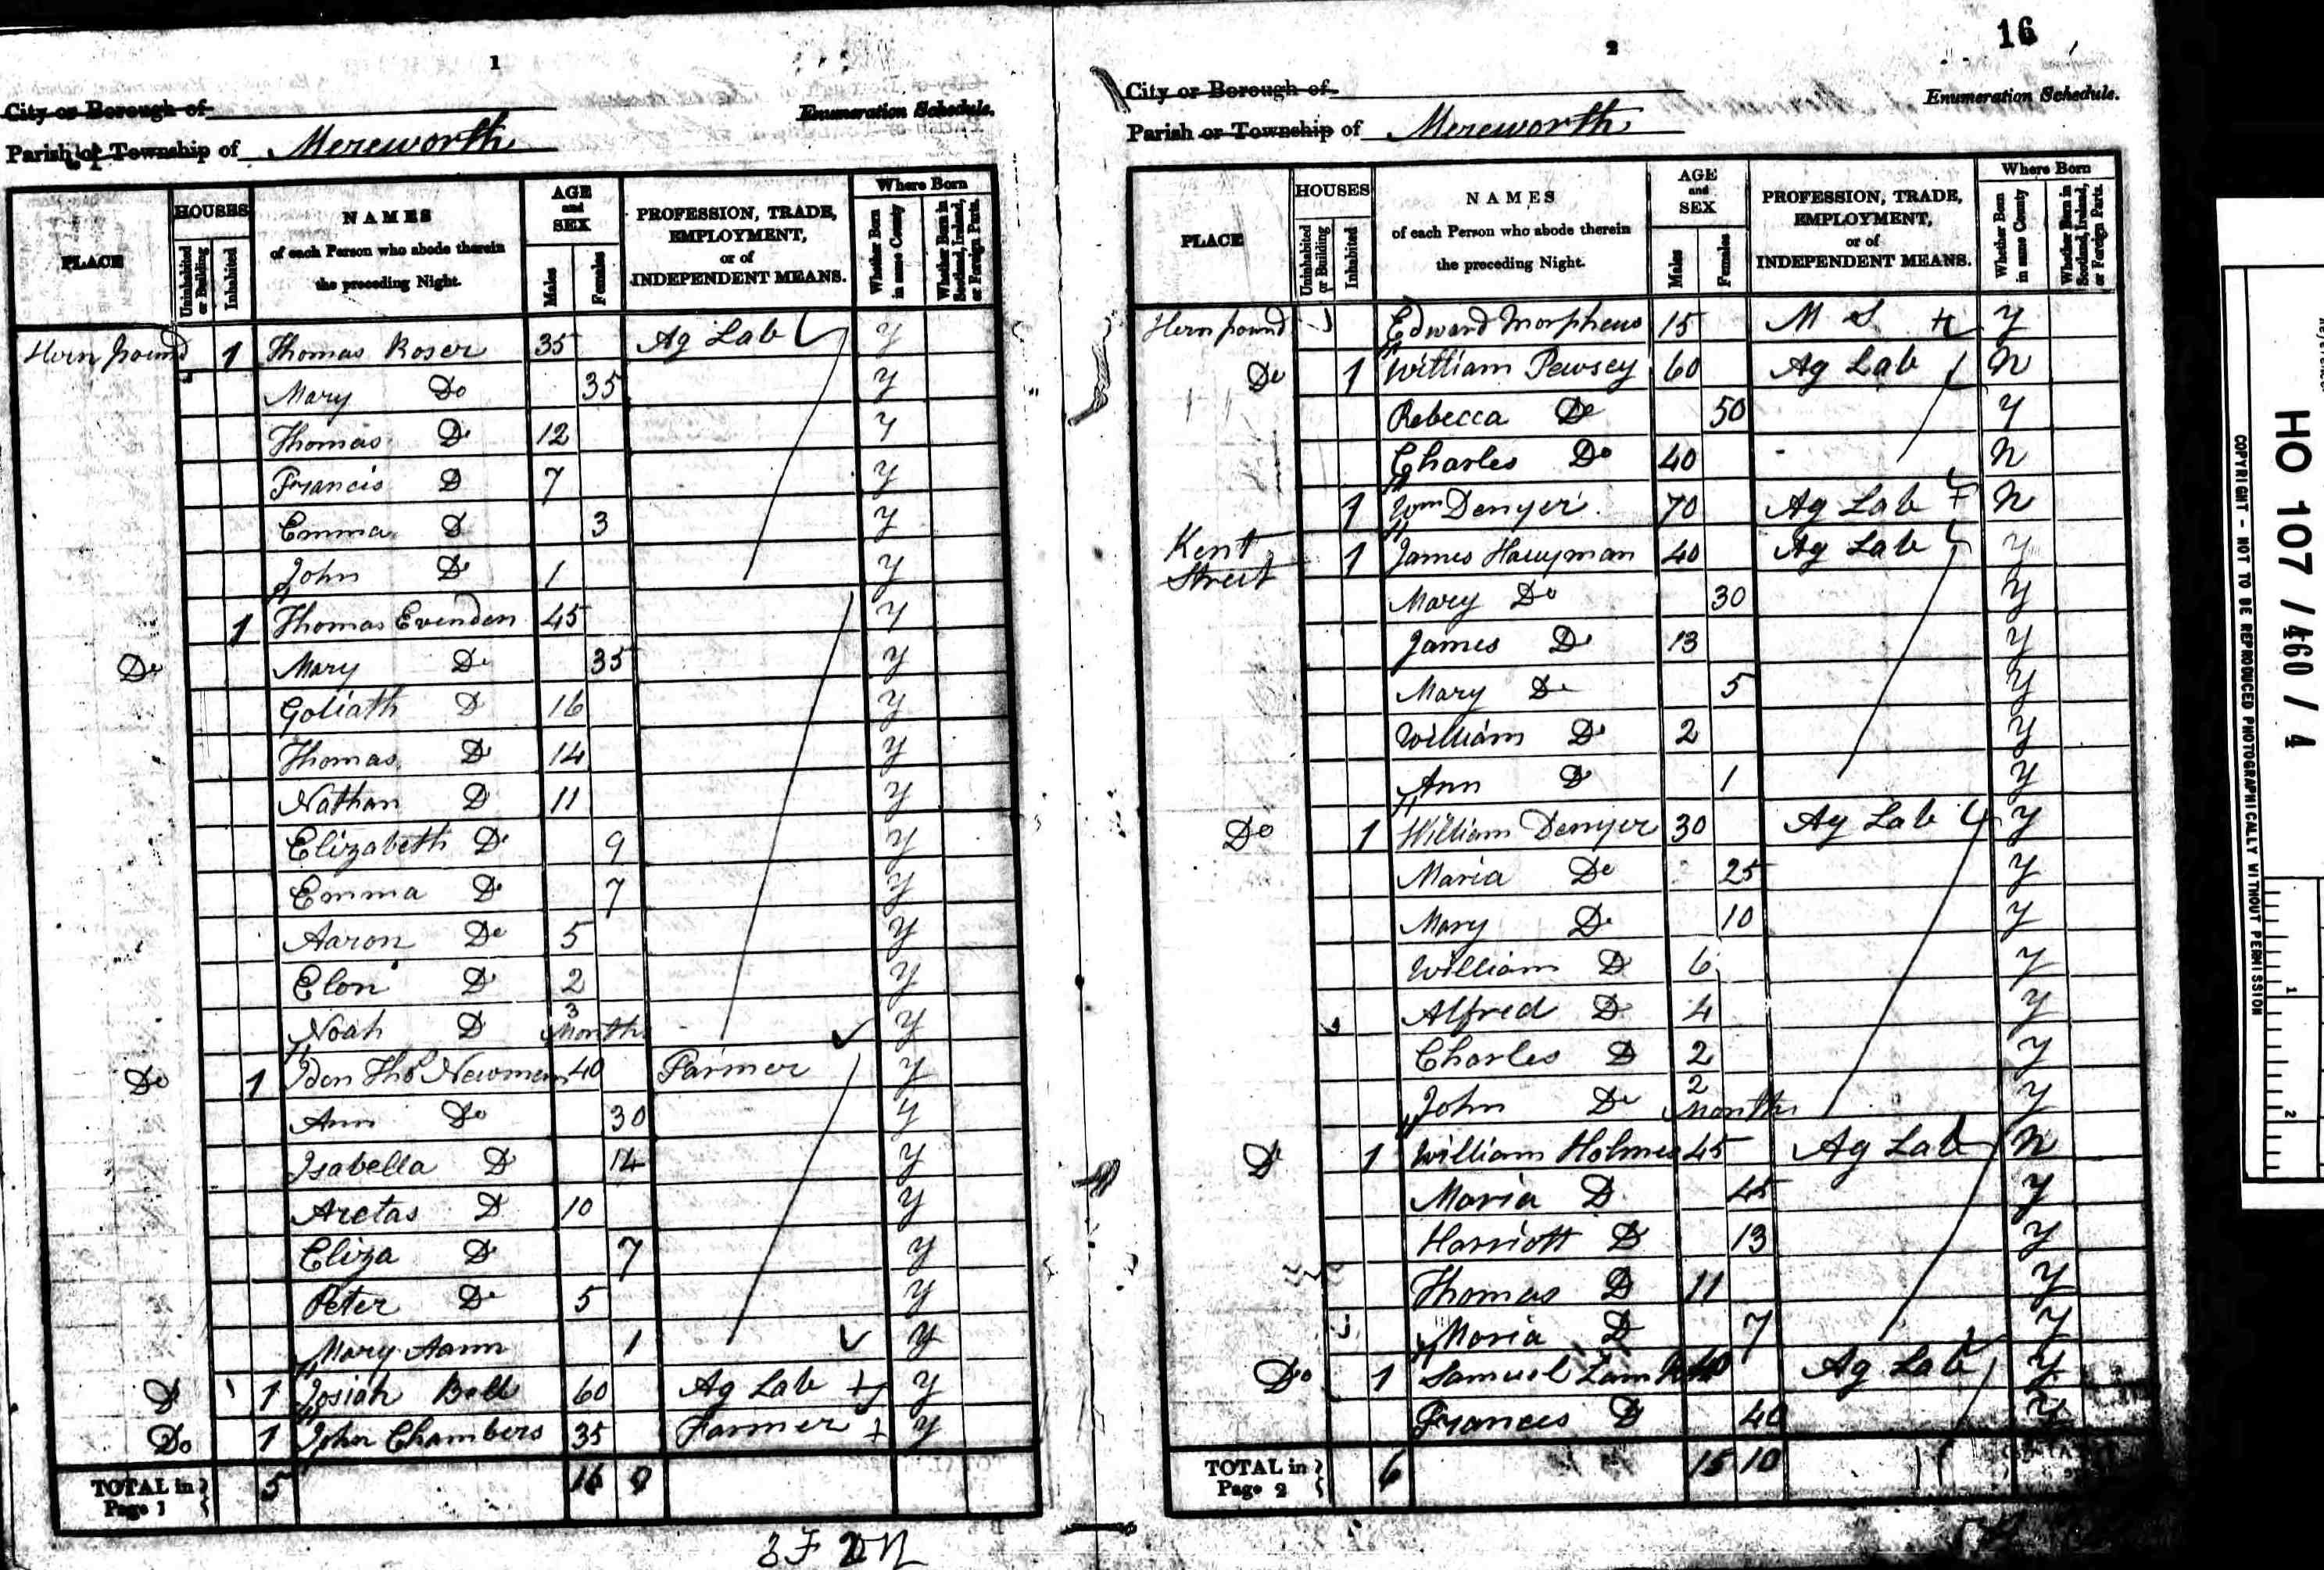 1
City or Borough of
Enumeration Schedule.
Parish or Township of Mereworth
PLACE
HOUSES
Uninhabited or Building
Inhabited
NAMES
of each Person who abode therein
the preceding Night.
AGE
and
SEX
Males
Females
PROFESSION, TRADE,
EMPLOYMENT,
or of
INDEPENDENT MEANS.
Where Born
Whether Born in same County
Whether Born in Scotland, Ireland, or Foreign Parts.
Hern pound 1 Thomas Roser 35 Ag Lab y
Mary Do 35 y
Thomas D 12 y
Francis D 7 y
Emma D 3 y
John Do 1 y
1 Thomas Evenden 45 y
Do Mary Do 35 y
Goliath D 16 y
Thomas D 14 y
Nathan D 11 y
Elizabeth Do 9 y
Emma Do 7 y
Aaron Do 5 y
Elon D 2 y
Noah D 3 Months y
Do 1 Iden Thos Newman 40 Farmer y
Ann Do 30 y
Isabella D 14 y
Aretas D 10 y
Eliza D 7 y
Peter Do 5 y
Mary Aann 1 y
D 1 Josiah Ball 60 Ag Lab y
Do 1 John Chambers 35 Farmer y
TOTAL in Page 1 5 16 9
3F 2N
16
2
City or Borough of
Enumeration Schedule.
Parish or Township of Mereworth
PLACE
HOUSES
Uninhabited or Building
Inhabited
NAMES
of each Person who abode therein
the preceding Night.
AGE
and
SEX
Males
Females
PROFESSION, TRADE,
EMPLOYMENT,
or of
INDEPENDENT MEANS.
Where Born
Whether Born in same County
Whether Born in Scotland, Ireland, or Foreign Parts.
Hern pound Edward Morpheus 15 M S y
Do 1 William Pewsey 60 Ag Lab N
Rebecca Do 50 y
Charles Do 40 N
1 Wm Denyer 70 Ag Lab N
Kent Street 1 James 40 Ag Lab y
Mary Do 30 y
James D 13 y
Mary Do 5 y
William Do 2 y
Ann D 1 y
Do 1 William Denyer 30 Ag Lab y
Maria Do 25 y
Mary Do 10 y
William D 6 y
Alfred D 4 y
Charles D 2 y
John Do 2 Months y
D 1 William Holmes 45 Ag Lab N
Maria D 45 y
Harriott D 13 y
Thomas D 11 y
Maria D 7 y
Do 1 Samuel 40 Ag Lab y
Frances D 40 y
TOTAL in Page 2 6 15 10
HO 107 / 460 / 4
COPYRIGHT - NOT TO BE REPRODUCED PHOTOGRAPHICALLY WITHOUT PERMISSION
1
2